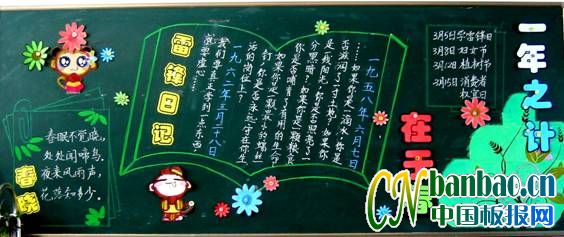 一年之计
在于
3月5日学雷锋日
3月8日妇女节
3月12日植树节
3月15日消费者
权益日
一九五八年六月七日
……如果你是一滴水,你是
否滋润了一寸土地?如果你
是一线阳光,你是否照亮了一
分黑暗?如果你是一颗粮食
你是否哺育了有用的生命?
如果你是一颗最小的螺丝
钉,你是否永远守在你生
活的岗位上?
一九六二年三月二十八日
我们要真正学到一点东西
就要虚心
雷锋日记
春晓
春眠不觉晓,
处处闻啼鸟。
夜来风雨声,
花落知多少。
CN banbao.cn
中国板报网